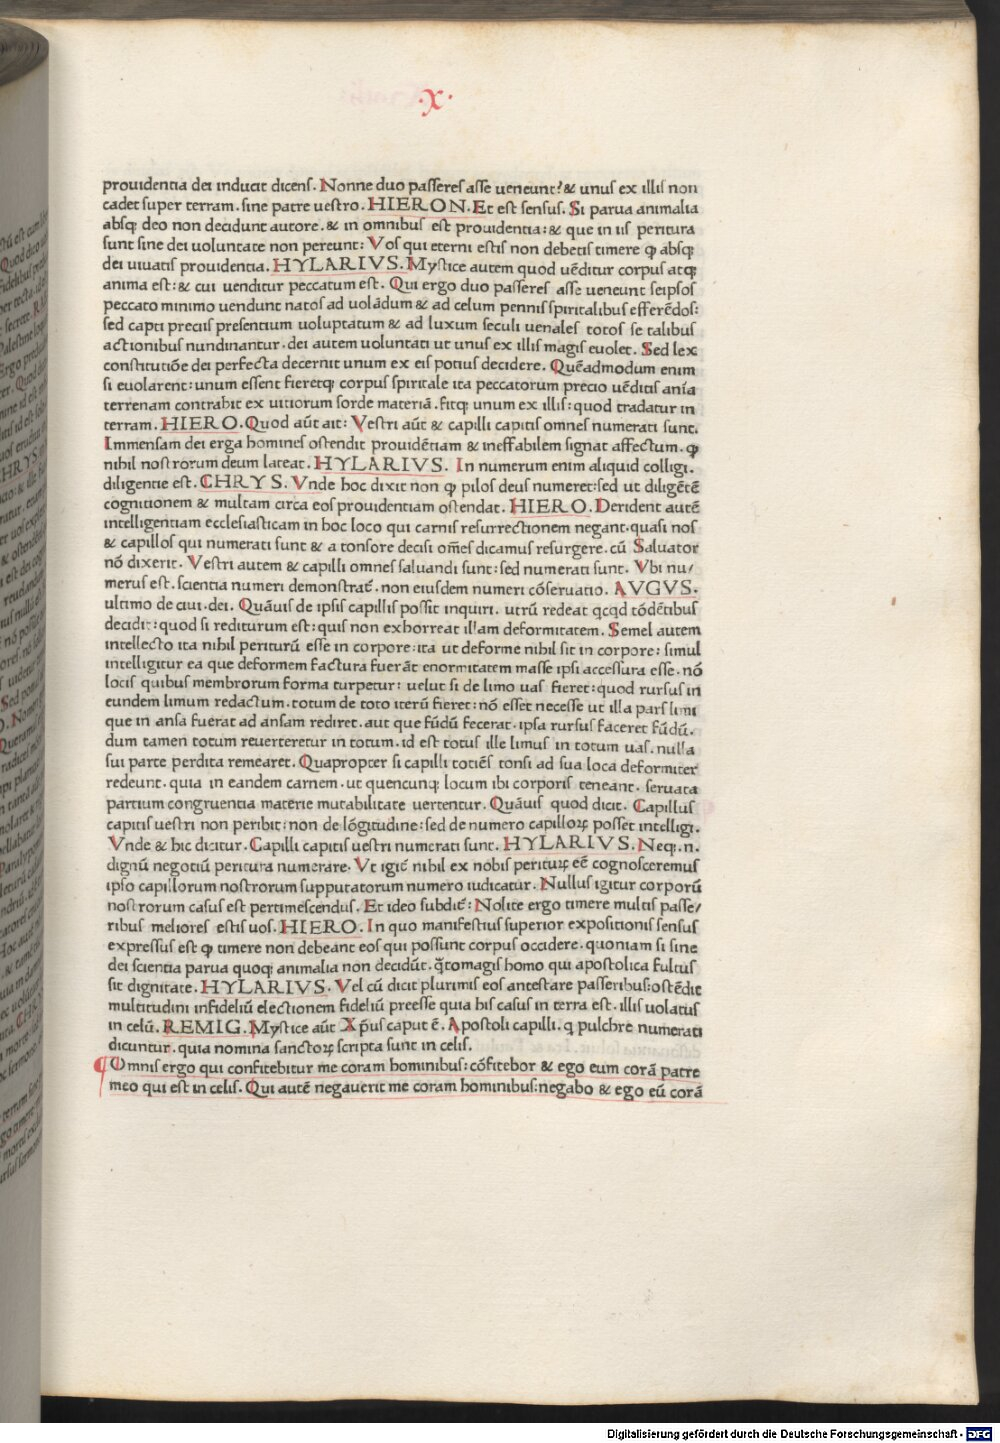 ·X·
prouidentia dei inducit dicens. Nonne duo passeres asse ueneunt? & unus ex illis non
cadet super terram. sine patre uestro. HIERON. Et est sensus. Si parua animalia
absq; deo non decidunt autore. & in omnibus est prouidentia: & que in iis peritura
sunt sine dei uoluntate non pereunt: Vos qui eterni estis non debetis timere ꝙ absq;
dei uiuatis prouidentia. HYLARIVS. Mystice autem quod uēditur corpus atq;
anima est: & cui uenditur peccatum est. Qui ergo duo passeres asse ueneunt seipsos
peccato minimo uendunt natos ad uolādum & ad celum pennis spiritalibus efferēdos:
sed capti preciis presentium uoluptatum & ad luxum seculi uenales totos se talibus
actionibus nundinantur. dei autem uoluntati ut unus ex illis magis euolet. Sed lex
constitutiōe dei perfecta decernit unum ex eis potius decidere. Quēadmodum enim
si euolarent: unum essent fieretq; corpus spiritale ita peccatorum precio uēditis anīa
terrenam contrahit ex uitiorum sorde materiā. fitq; unum ex illis: quod tradatur in
terram. HIERO. Quod aūt ait: Vestri aūt & capilli capitis omnes numerati sunt.
Immensam dei erga homines ostendit prouidētiam & ineffabilem signat affectum. ꝙ
nihil nostrorum deum lateat. HYLARIVS. In numerum enim aliquid colligi.
diligentie est. CHRYS. Vnde hoc dixit non ꝙ pilos deus numeret: sed ut diligētē
cognitionem & multam circa eos prouidentiam ostendat. HIERO. Derident autē
intelligentiam ecclesiasticam in hoc loco qui carnis resurrectionem negant. quasi nos
& capillos qui numerati sunt & a tonsore decisi om̄es dicamus resurgere. cū Saluator
nō dixerit. Vestri autem & capilli omnes saluandi sunt: sed numerati sunt. Vbi nu/
merus est. scientia numeri demonstrat̄. non eiusdem numeri cōseruatio. AVGVS.
ultimo de ciui. dei. Quāuis de ipsis capillis possit inquiri. utrū redeat qcqd tōdētibus
decidit: quod si rediturum est: quis non exhorreat illam deformitatem. Semel autem
intellecto ita nihil periturū esse in corpore: ita ut deforme nihil sit in corpore: simul
intelligitur ea que deformem factura fuerāt enormitatem masse ipsi accessura esse. nō
locis quibus membrorum forma turpetur: uelut si de limo uas fieret: quod rursus in
eundem limum redactum. totum de toto iterū fieret: nō esset necesse ut illa pars limi
que in ansa fuerat ad ansam rediret. aut que fūdū fecerat. ipsa rursus faceret fūdū.
dum tamen totum reuerteretur in totum. id est totus ille limus in totum uas. nulla
sui parte perdita remearet. Quapropter si capilli totiēs tonsi ad sua loca deformiter
redeunt. quia in eandem carnem. ut quencunq; locum ibi corporis teneant. seruata
partium congruentia materie mutabilitate uertentur. Quāuis quod dicit. Capillus
capitis uestri non peribit: non de lōgitudine: sed de numero capilloꝝ posset intelligi.
Vnde & hic dicitur. Capilli capitis uestri numerati sunt. HYLARIVS. Neq;. n.
dignū negotiū peritura numerare. Vt igit̄ nihil ex nobis perituꝝ eē cognosceremus
ipso capillorum nostrorum supputatorum numero iudicatur. Nullus igitur corporū
nostrorum casus est pertimescendus. Et ideo subdit̄: Nolite ergo timere multis passe/
ribus meliores estis uos. HIERO. In quo manifestius superior expositionis sensus
expressus est ꝙ timere non debeant eos qui possunt corpus occidere. quoniam si sine
dei scientia parua quoq; animalia non decidūt. q̄tomagis homo qui apostolica fultus
sit dignitate. HYLARIVS. Vel cū dicit plurimis eos antestare passeribus: ostēdit
multitudini infideliū electionem fideliū preesse quia his casus in terra est. illis uolatus
in celū. REMIG. Mystice aūt Xp̄us caput ē. Apostoli capilli. q pulchre numerati
dicuntur. quia nomina sanctoꝝ scripta sunt in celis.
¶ Omnis ergo qui confitebitur me coram hominibus: cōfitebor & ego eum corā patre
meo qui est in celis. Qui autē negauerit me coram hominibus: negabo & ego eū corā
Digitalisierung gefördert durch die Deutsche Forschungsgemeinschaft - DFG